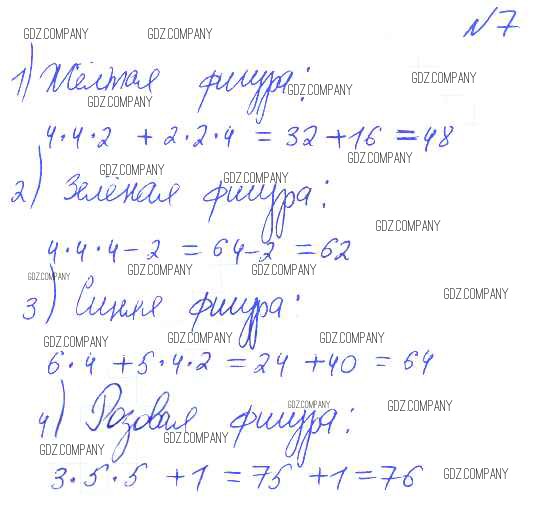 №7
GDZ.COMPANY GDZ.COMPANY
1) Жёлтая фигура:
GDZ.COMPANY GDZ.COMPANY GDZ.COMPANY
4·4·2 + 2·2·4 = 32 + 16 = 48
GDZ.COMPANY
GDZ.COMPANY GDZ.COMPANY
2) Зелёная фигура:
GDZ.COMPANY
4·4·4 - 2 = 64 - 2 = 62
GDZ.COMPANY GDZ.COMPANY GDZ.COMPANY
GDZ.COMPANY
3) Синяя фигура:
GDZ.COMPANY GDZ.COMPANY GDZ.COMPANY
6·4 + 5·4·2 = 24 + 40 = 64
GDZ.COMPANY GDZ.COMPANY
4) Розовая фигура:
GDZ.COMPANY GDZ.COMPANY
3·5·5 + 1 = 75 + 1 = 76
GDZ.COMPANY